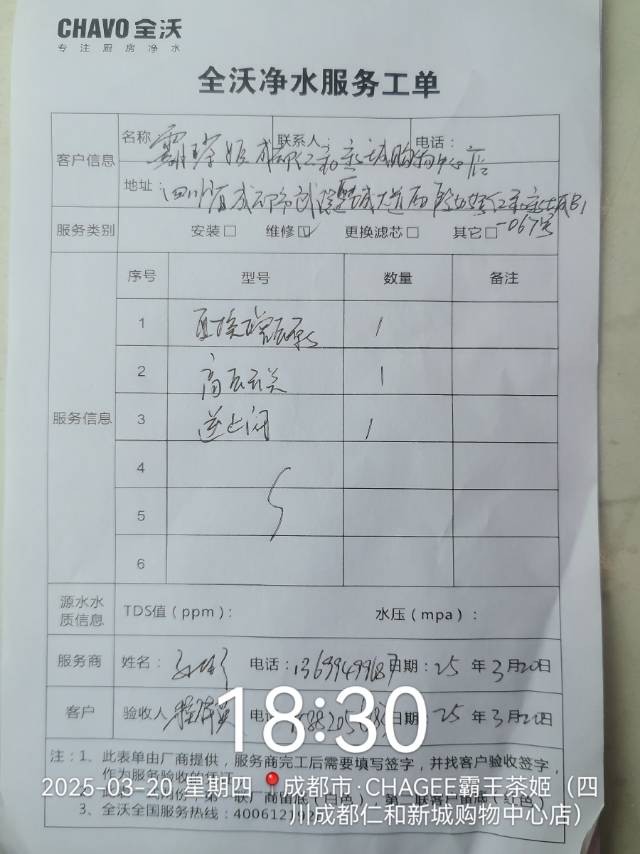 CHAVO 全沃
专注厨房净水
全沃净水服务工单
客户信息
名称 霸王茶姬成都仁和新城购物中心店
联系人: 电话:
地址: 四川省成都市
服务类别 安装□ 维修☑ 更换滤芯□ 其它□
-067号
序号 型号 数量 备注
1 更换增压泵 1
2 高压开关 1
服务信息
3 逆止阀 1
4
5
6
源水水质信息 TDS值(ppm): 水压(mpa):
服务商 姓名: 电话: 日期: 25 年 3月20日
客户 验收人 电话 日期: 25 年 3月20日
18:30
注: 1、此表单由厂商提供,服务商完工后需要填写签字,并找客户验收签字,
作为服务验收的凭证
2025-03-20 星期四 成都市·CHAGEE霸王茶姬(四
川成都仁和新城购物中心店)
3、全沃全国服务热线: